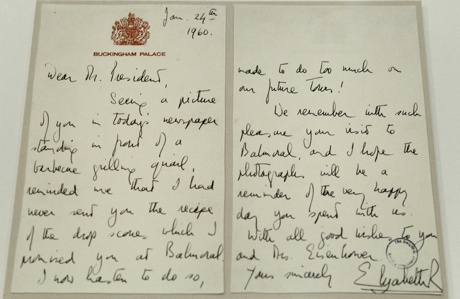 Jan. 24th
1960.
BUCKINGHAM PALACE
Dear Mr. President,
Seeing a picture
of you in today's newspaper
standing in front of a
barbecue grilling quail,
reminded me that I had
never sent you the recipe
of the drop scones which I
promised you at Balmoral.
I now hasten to do so,
made to do too much on
our future tours!
We remember with such
pleasure your visit to
Balmoral, and I hope the
photographs will be a
reminder of the very happy
day you spent with us.
With all good wishes to you
and Mrs. Eisenhower.
Yours sincerely
Elizabeth R